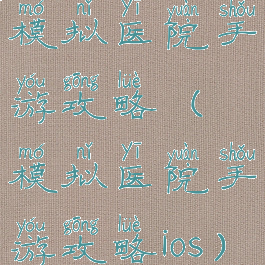 mó nǐ yī yuàn shǒu
模拟医院手
yóu gōng lüè
游攻略（
mó nǐ yī yuàn shǒu
模拟医院手
yóu gōng lüè
游攻略ios）